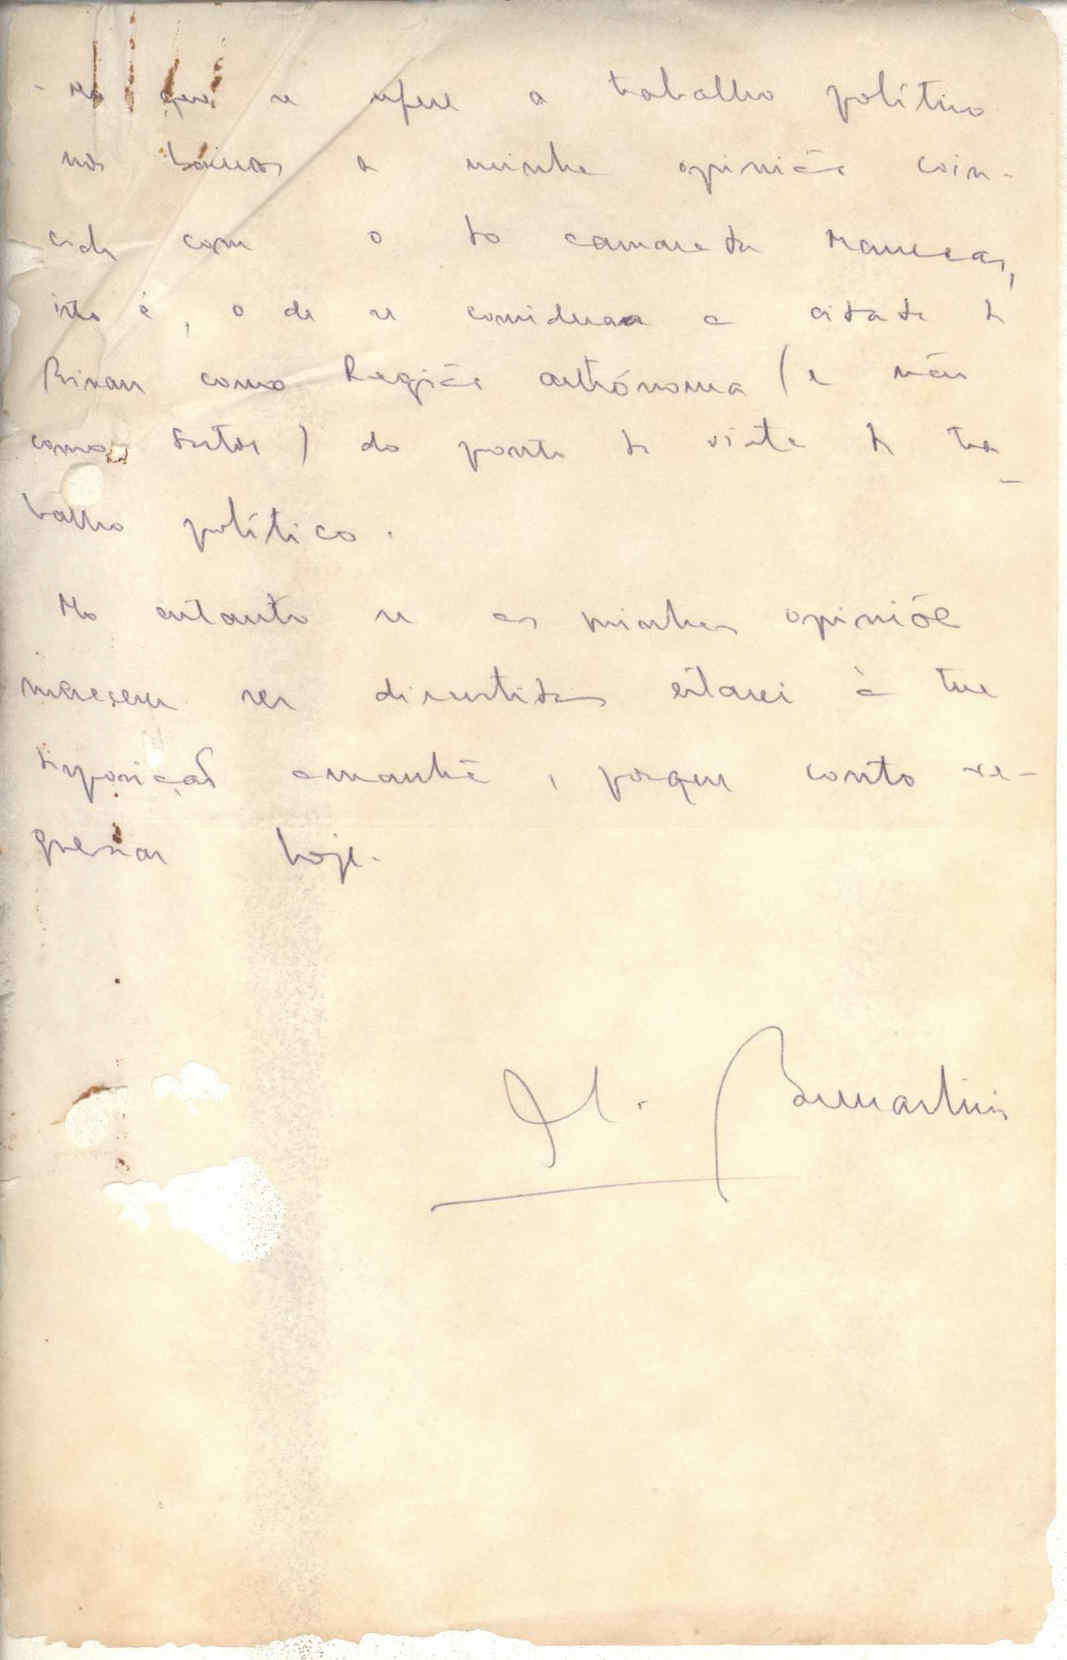 - No que se refere a trabalho político
nos bairros a minha opinião coin-
cide com o do camarada Manecas,
isto é, o de se considerar a cidade de
Bissau como Região autónoma (e não
como Sector) do ponto de vista de tra-
balho político.
No entanto se as minhas opiniões
merecem ser discutidas estarei à tua
disposição amanhã, porque conto re-
gressar hoje.